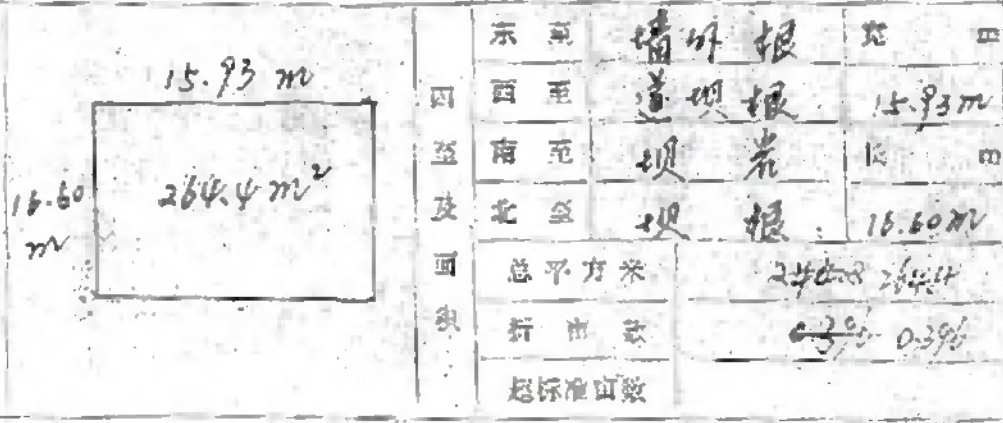 15.93 m
16.60 m
264.4 m²
四至及面积
东至 墙外根 宽 m
西至 道坝根 15.93m
南至 坝岩 长 m
北至 坝根 16.60m
总平方米 264.4
折市亩 0.396
超标准亩数